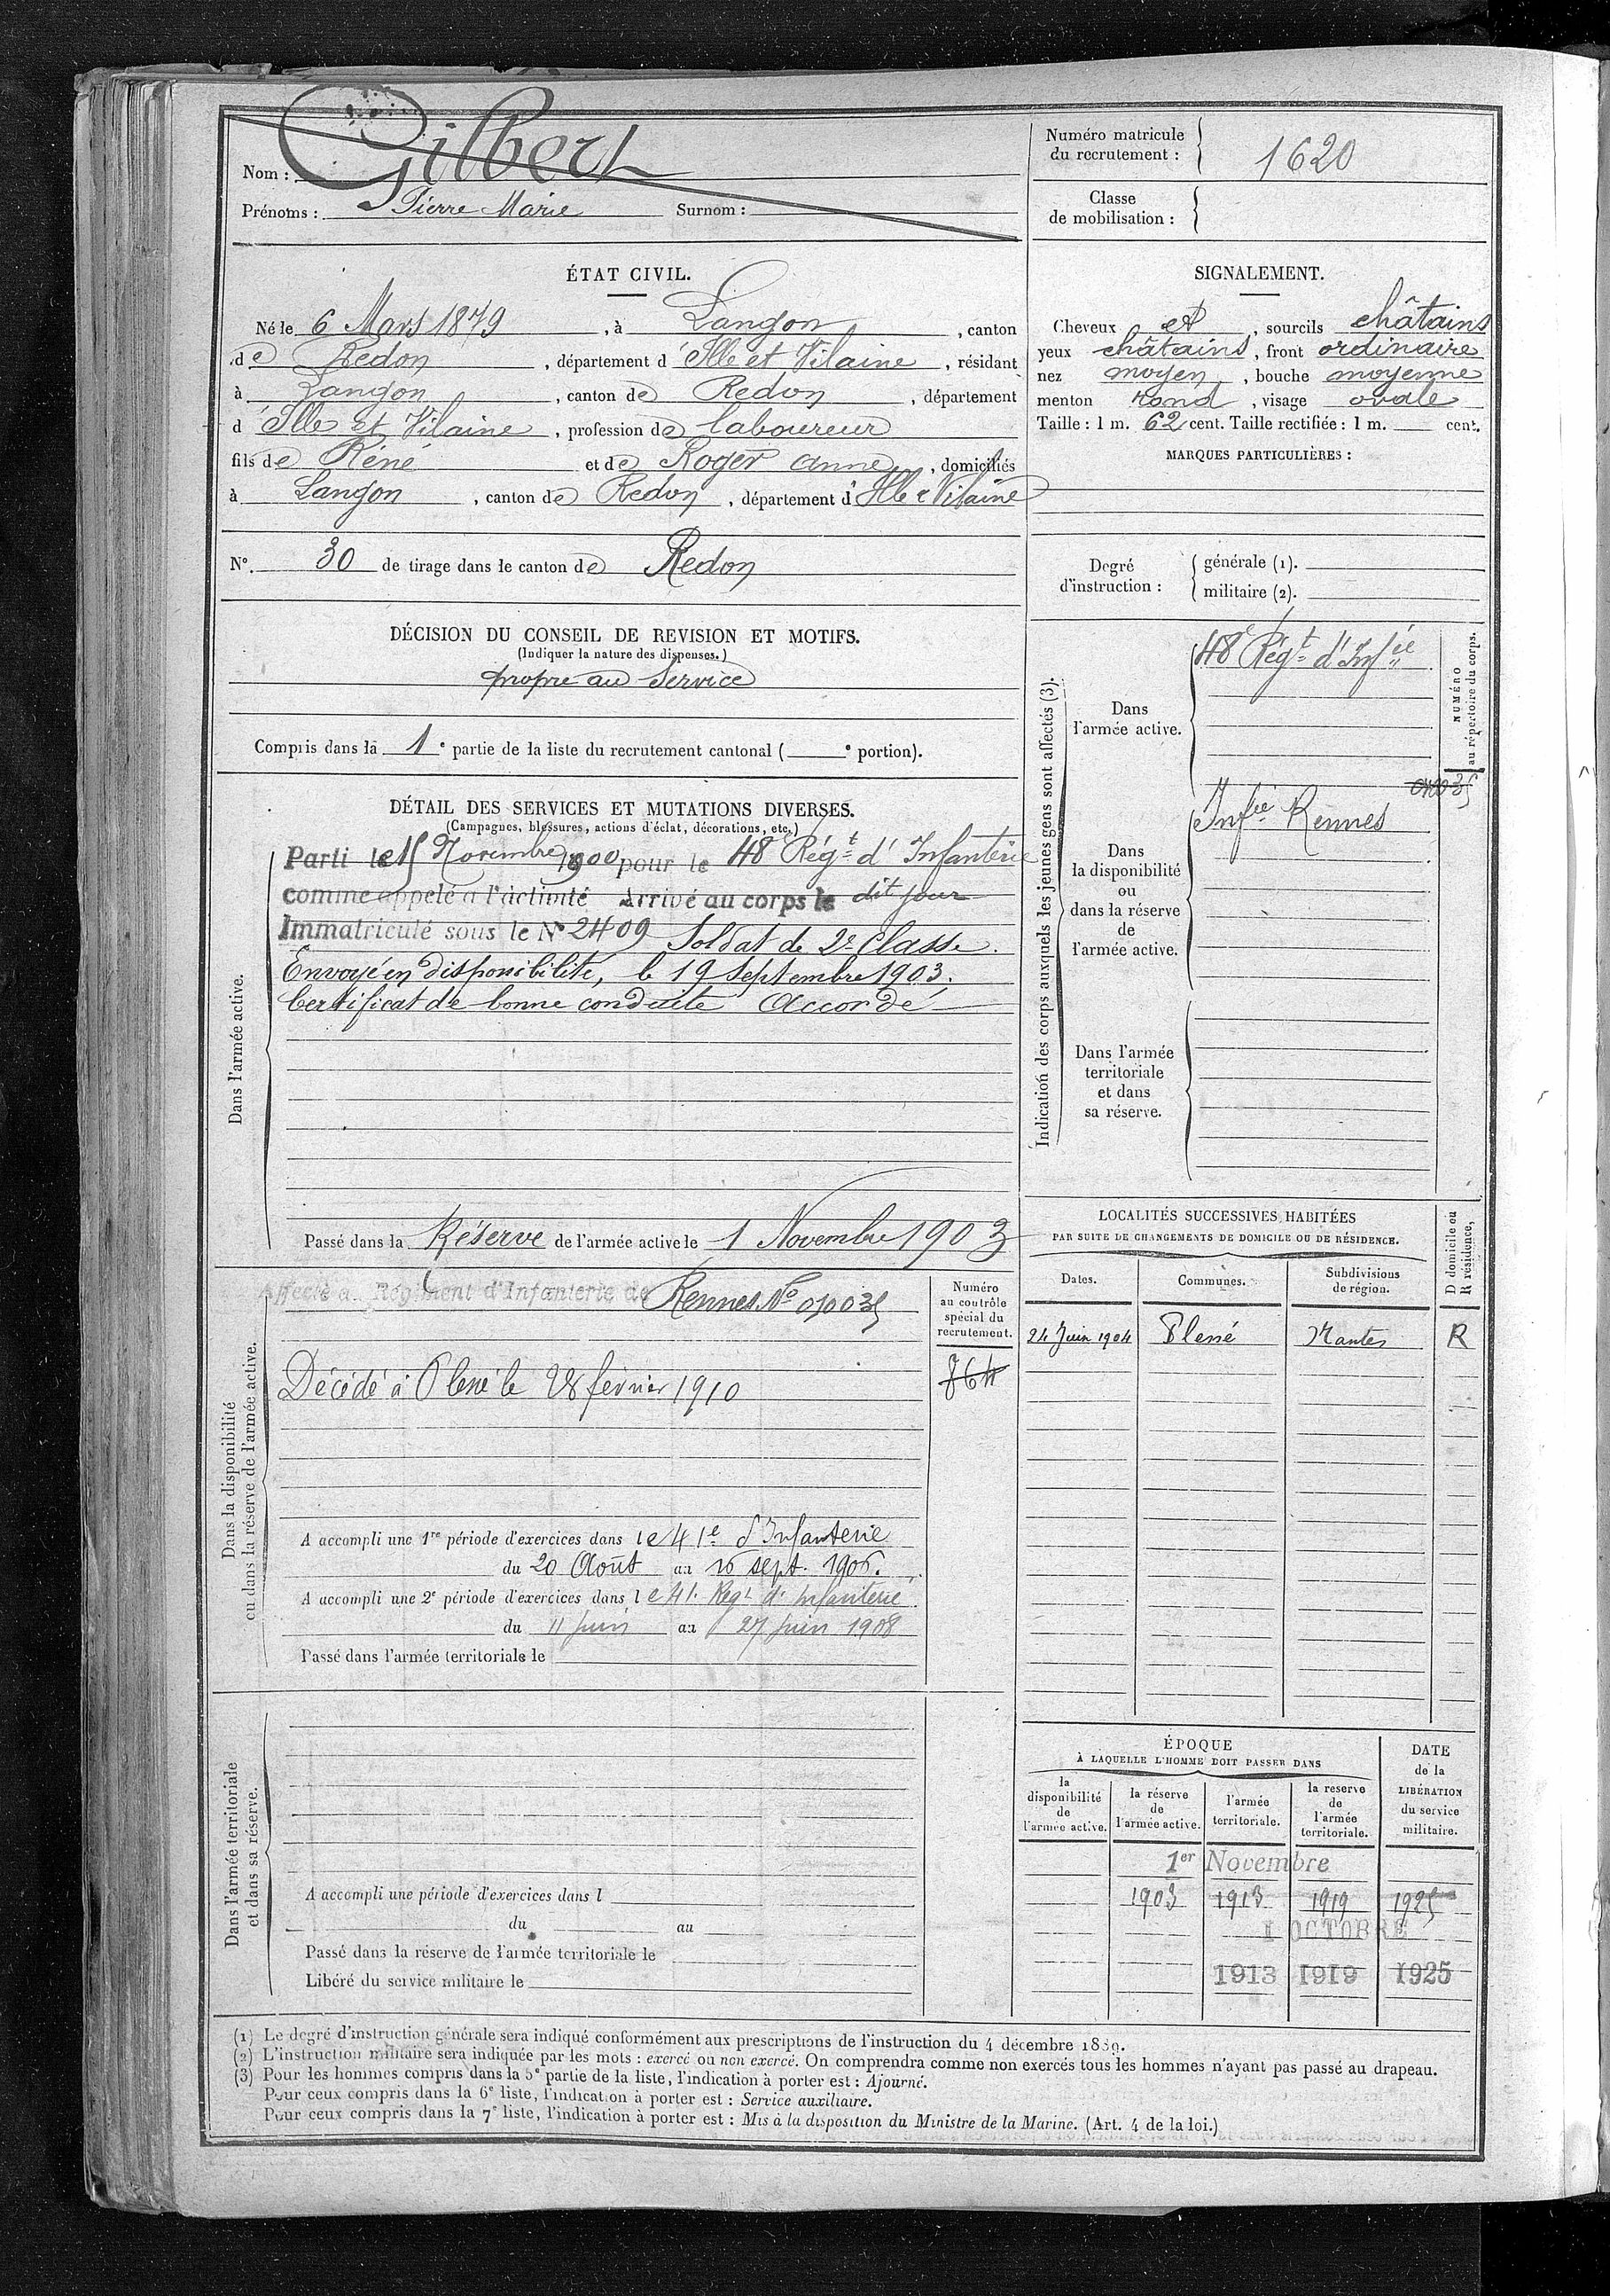 Nom : Gilbert
Prénoms : Pierre Marie Surnom :
Numéro matricule du recrutement : 1620
Classe de mobilisation :
ÉTAT CIVIL.
Né le 6 Mars 1879, à Langon, canton
de Redon, département d'Ille et Vilaine, résidant
à Langon, canton de Redon, département
d'Ille et Vilaine, profession de laboureur
fils de Réné et de Roger Anne, domiciliés
à Langon, canton de Redon, département d'Ille & Vilaine
N°. 30 de tirage dans le canton de Redon
DÉCISION DU CONSEIL DE REVISION ET MOTIFS.
(Indiquer la nature des dispenses.)
propre au service
Compris dans la 1e partie de la liste du recrutement cantonal ( e portion).
DÉTAIL DES SERVICES ET MUTATIONS DIVERSES.
(Campagnes, blessures, actions d'éclat, décorations, etc.)
Dans l'armée active.
Parti le 15 Novembre 1900 pour le 48e Régt d'Infanterie
comme appelé à l'activité Arrivé au corps le dit jour
Immatriculé sous le N° 2409 Soldat de 2e Classe.
Envoyé en disponibilité, le 19 Septembre 1903.
Certificat de bonne conduite Accordé
Passé dans la Réserve de l'armée active le 1 Novembre 1903
Dans la disponibilité
ou dans la réserve de l'armée active.
Affecté au Régiment d'Infanterie de Rennes No 010035
Numéro
au contrôle
spécial du
recrutement.
764
Décédé à Plessé le 28 février 1910
A accompli une 1re période d'exercices dans le 41e d'Infanterie
du 20 Août au 16 sept. 1906.
A accompli une 2e période d'exercices dans le 41e Regt d'infanterie
du 11 juin au 27 juin 1908
Passé dans l'armée territoriale le
Dans l'armée territoriale
et dans sa réserve.
A accompli une période d'exercices dans l
du au
Passé dans la réserve de l'armée territoriale le
Libéré du service militaire le
SIGNALEMENT.
Cheveux et, sourcils châtains
yeux châtains, front ordinaire
nez moyen, bouche moyenne
menton rond, visage ovale
Taille : 1 m. 62 cent. Taille rectifiée : 1 m. cent.
MARQUES PARTICULIÈRES :
Degré
d'instruction :
générale (1).
militaire (2).
Indication des corps auxquels les jeunes gens sont affectés (3).
NUMÉRO
au répertoire du corps.
Dans
l'armée active.
48e Régt d'Infie
Dans
la disponibilité
ou
dans la réserve
de
l'armée active.
Infie Rennes
Dans l'armée
territoriale
et dans
sa réserve.
LOCALITÉS SUCCESSIVES HABITÉES
PAR SUITE DE CHANGEMENTS DE DOMICILE OU DE RÉSIDENCE.
D domicile ou
R résidence.
Dates. Communes. Subdivisions
de région.
24 Juin 1904 Plessé Nantes R
ÉPOQUE
À LAQUELLE L'HOMME DOIT PASSER DANS
la
disponibilité
de
l'armée active.
la réserve
de
l'armée active.
l'armée
territoriale.
la reserve
de
l'armée
territoriale.
DATE
de la
LIBÉRATION
du service
militaire.
1er Novembre
1903 1913 1919 1925
1 OCTOBRE
1913 1919 1925
(1) Le degré d'instruction générale sera indiqué conformément aux prescriptions de l'instruction du 4 décembre 1889.
(2) L'instruction militaire sera indiquée par les mots : exercé ou non exercé. On comprendra comme non exercés tous les hommes n'ayant pas passé au drapeau.
(3) Pour les hommes compris dans la 5e partie de la liste, l'indication à porter est : Ajourné.
Pour ceux compris dans la 6e liste, l'indication à porter est : Service auxiliaire.
Pour ceux compris dans la 7e liste, l'indication à porter est : Mis à la disposition du Ministre de la Marine. (Art. 4 de la loi.)